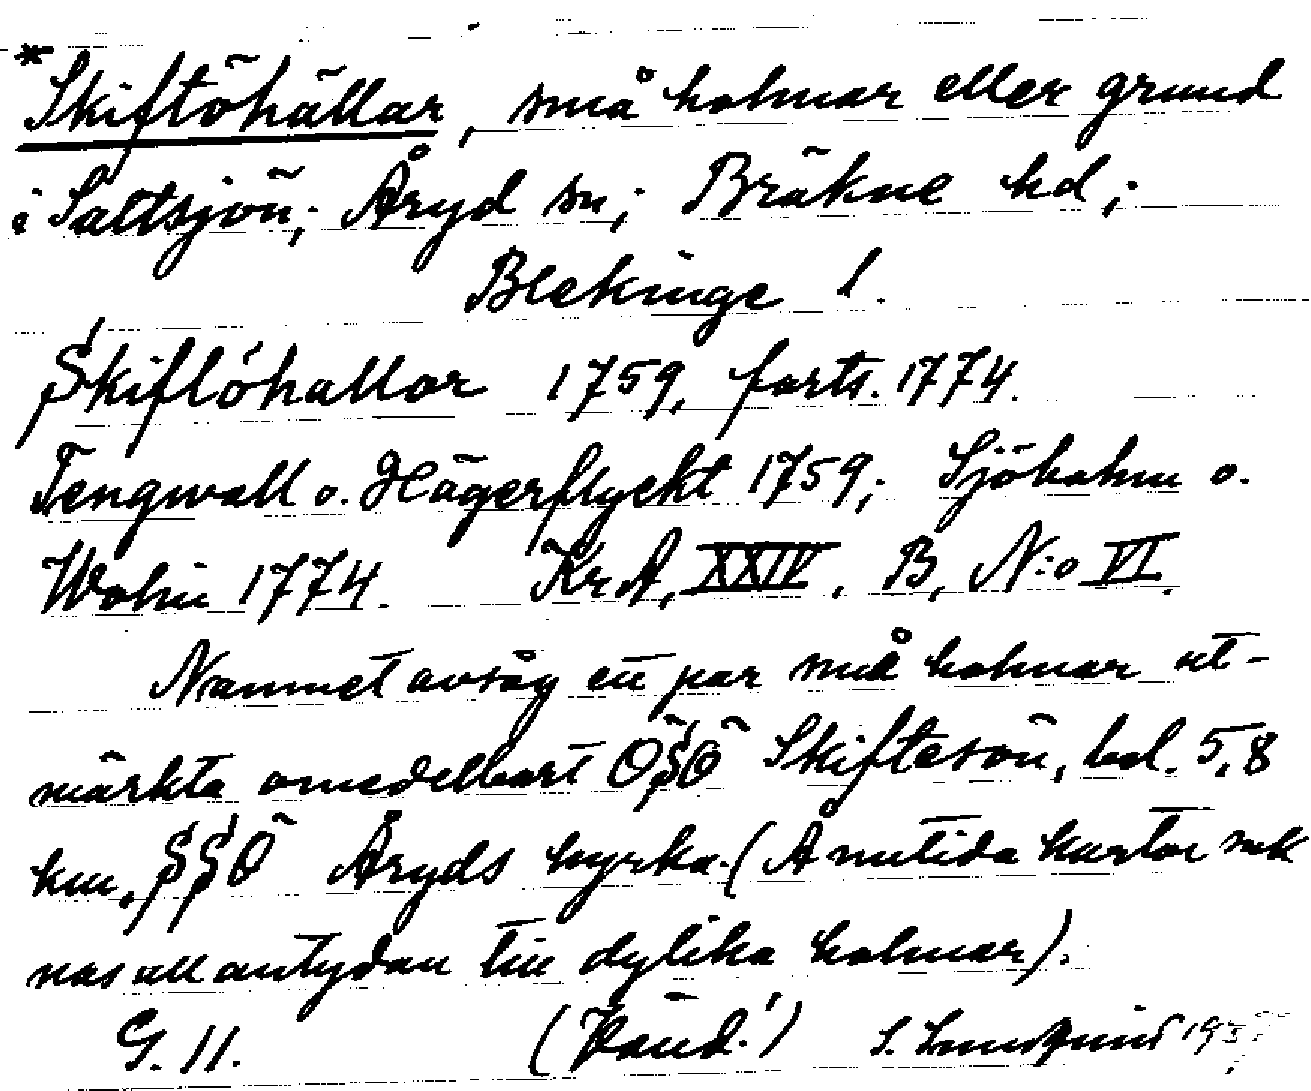 *Skiftöhällar, små holmar eller grund
i Saltsjön; Åryd sn; Bräkne hd;
Blekinge l.
Skiftöhallar 1759, forts. 1774.
Tengwall o. Hägerflyckt 1759; Sjöbohm o.
Wohn 1774. KrA, XXIV, B, N:o VI.
Namnet avsåg ett par små holmar ut-
märkta omedelbart OSO Skifteson, bel. 5,8
km, SSO Åryds kyrka. (Å nutida kartor sak
nas all antydan till dylika holmar).
G. 11. (Känd.!) S. Lundquist